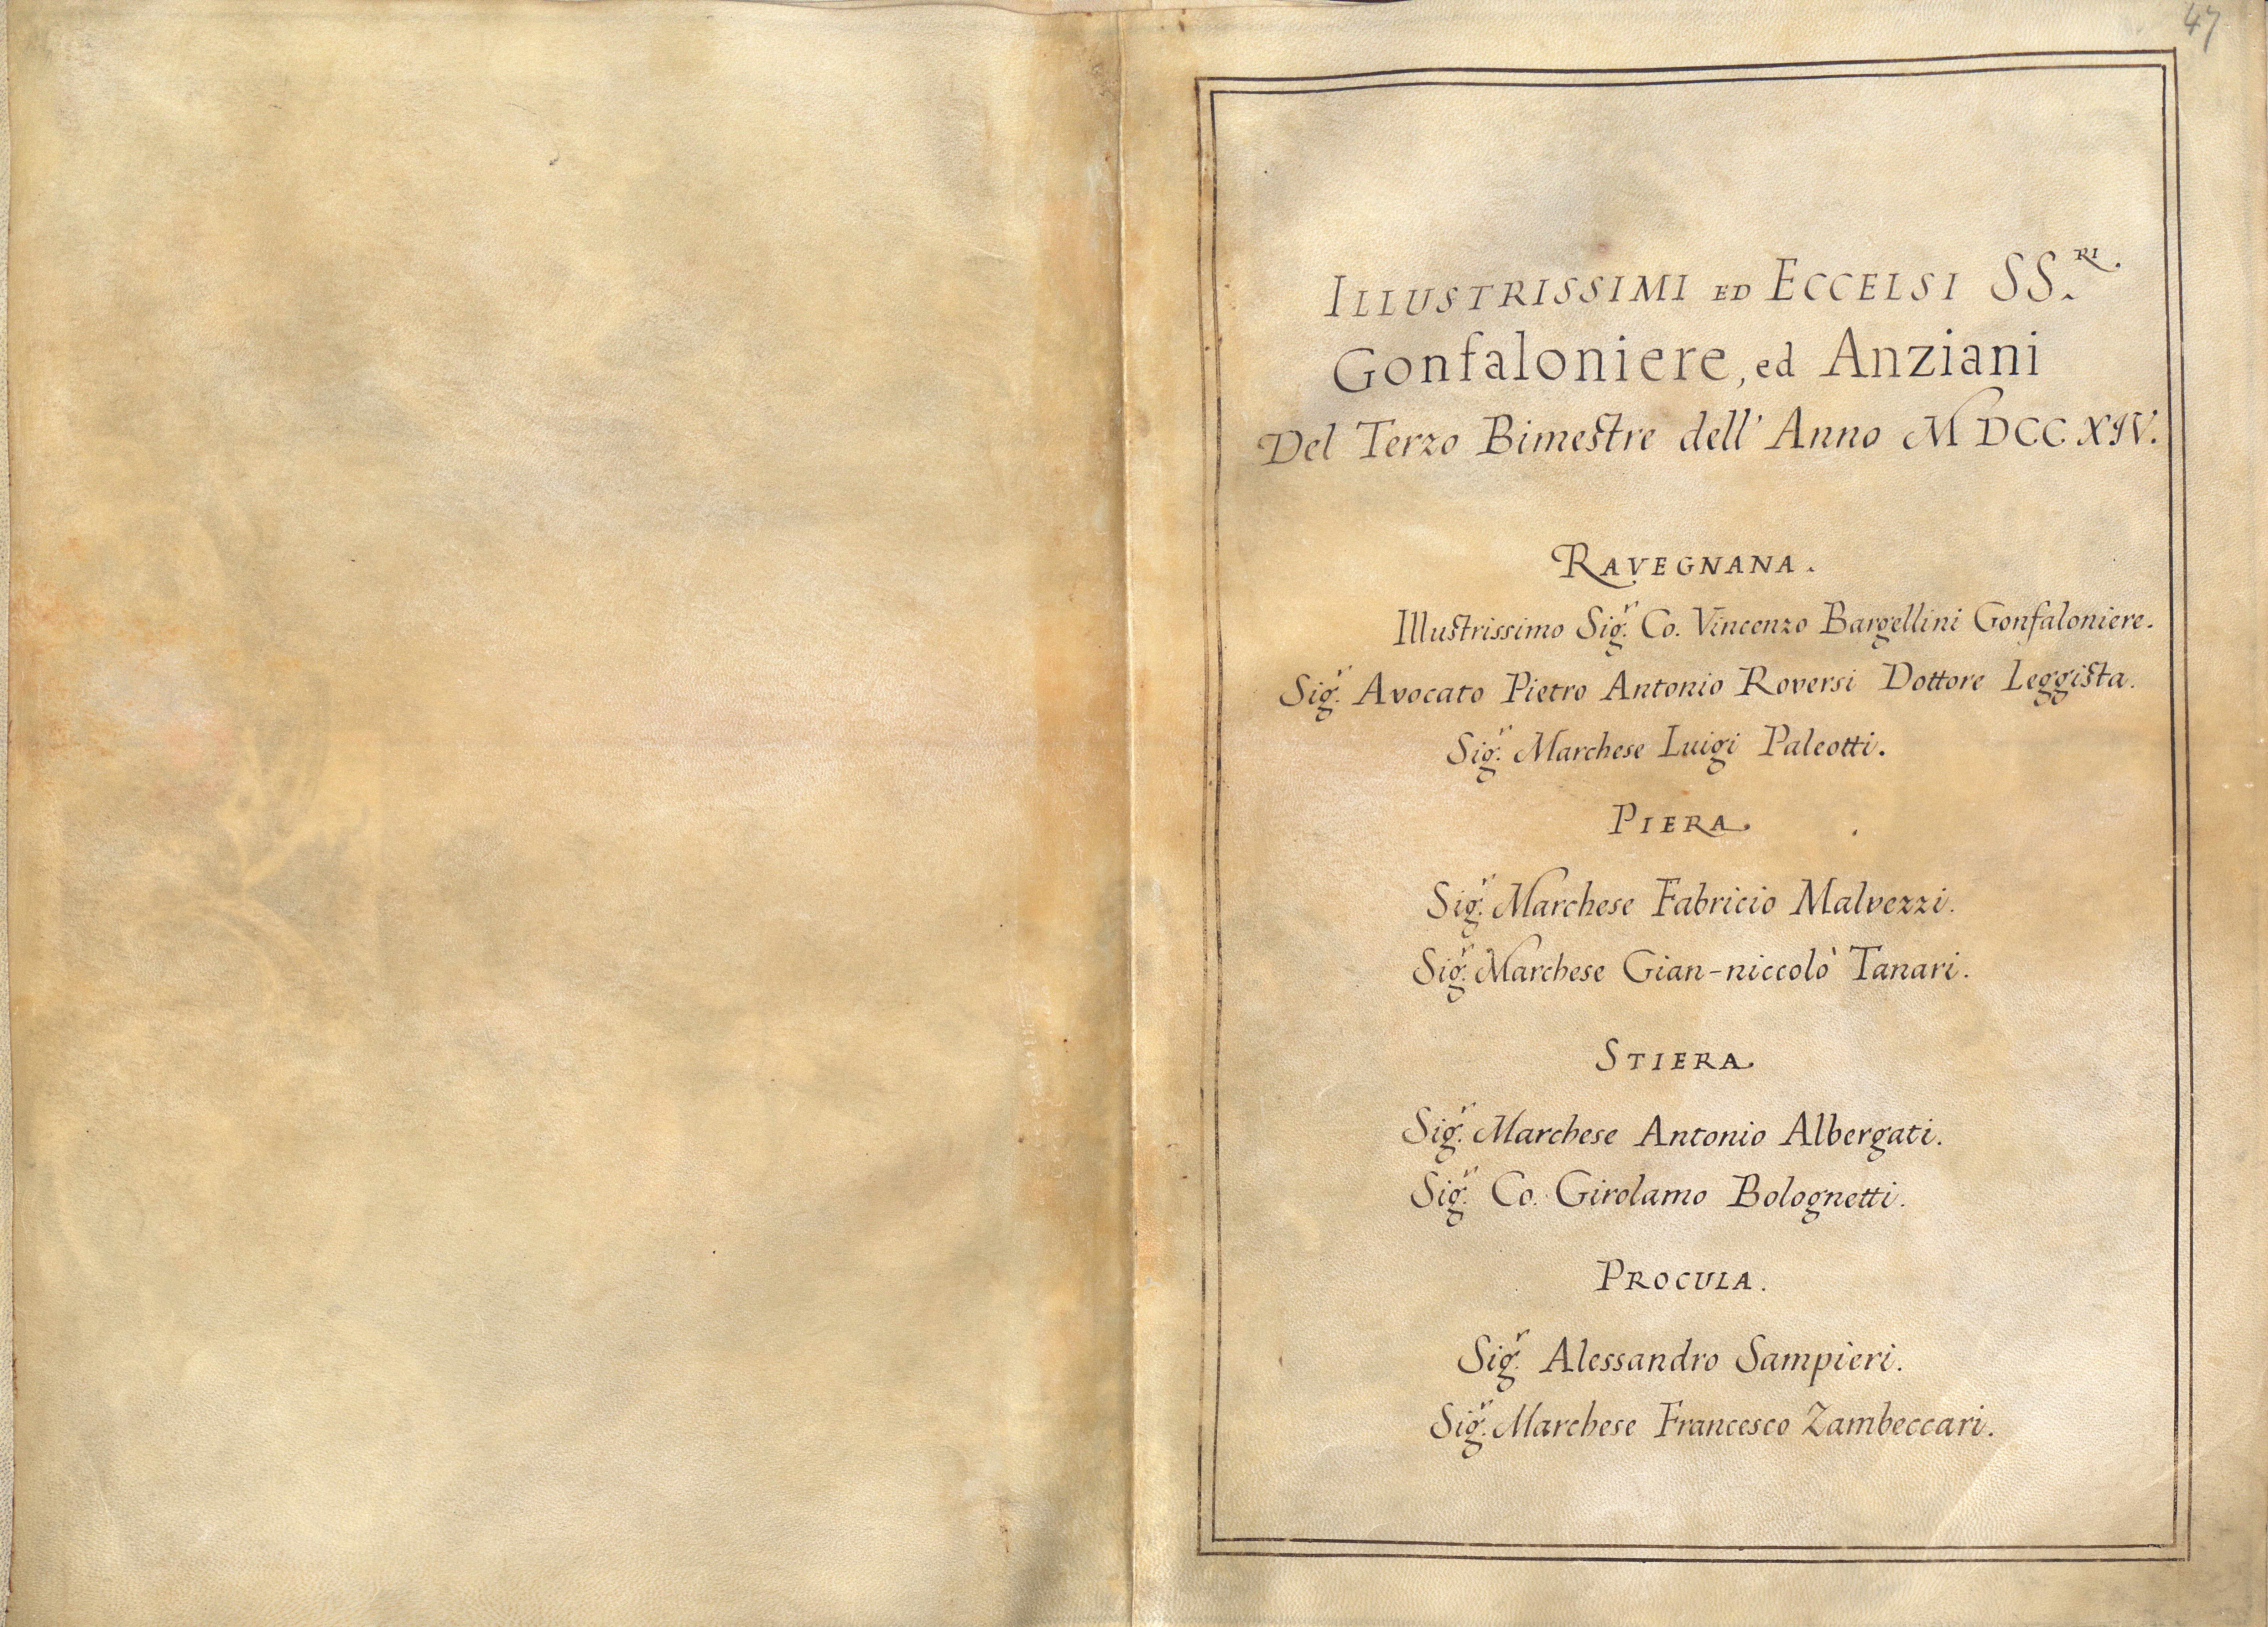 47
ILLUSTRISSIMI ED ECCELSI SS.RI.
Gonfaloniere, ed Anziani
Del Terzo Bimestre dell' Anno MDCCXIV.
RAVEGNANA.
Illustrissimo Sig.r Co. Vincenzo Bargellini Gonfaloniere.
Sig.r Avocato Pietro Antonio Roversi Dottore Leggista.
Sig.r Marchese Luigi Paleotti.
PIERA.
Sig.r Marchese Fabricio Malvezzi.
Sig.r Marchese Gian-niccolò Tanari.
STIERA.
Sig.r Marchese Antonio Albergati.
Sig.r Co. Girolamo Bolognetti.
PROCULA.
Sig.r Alessandro Sampieri.
Sig.r Marchese Francesco Zambeccari.